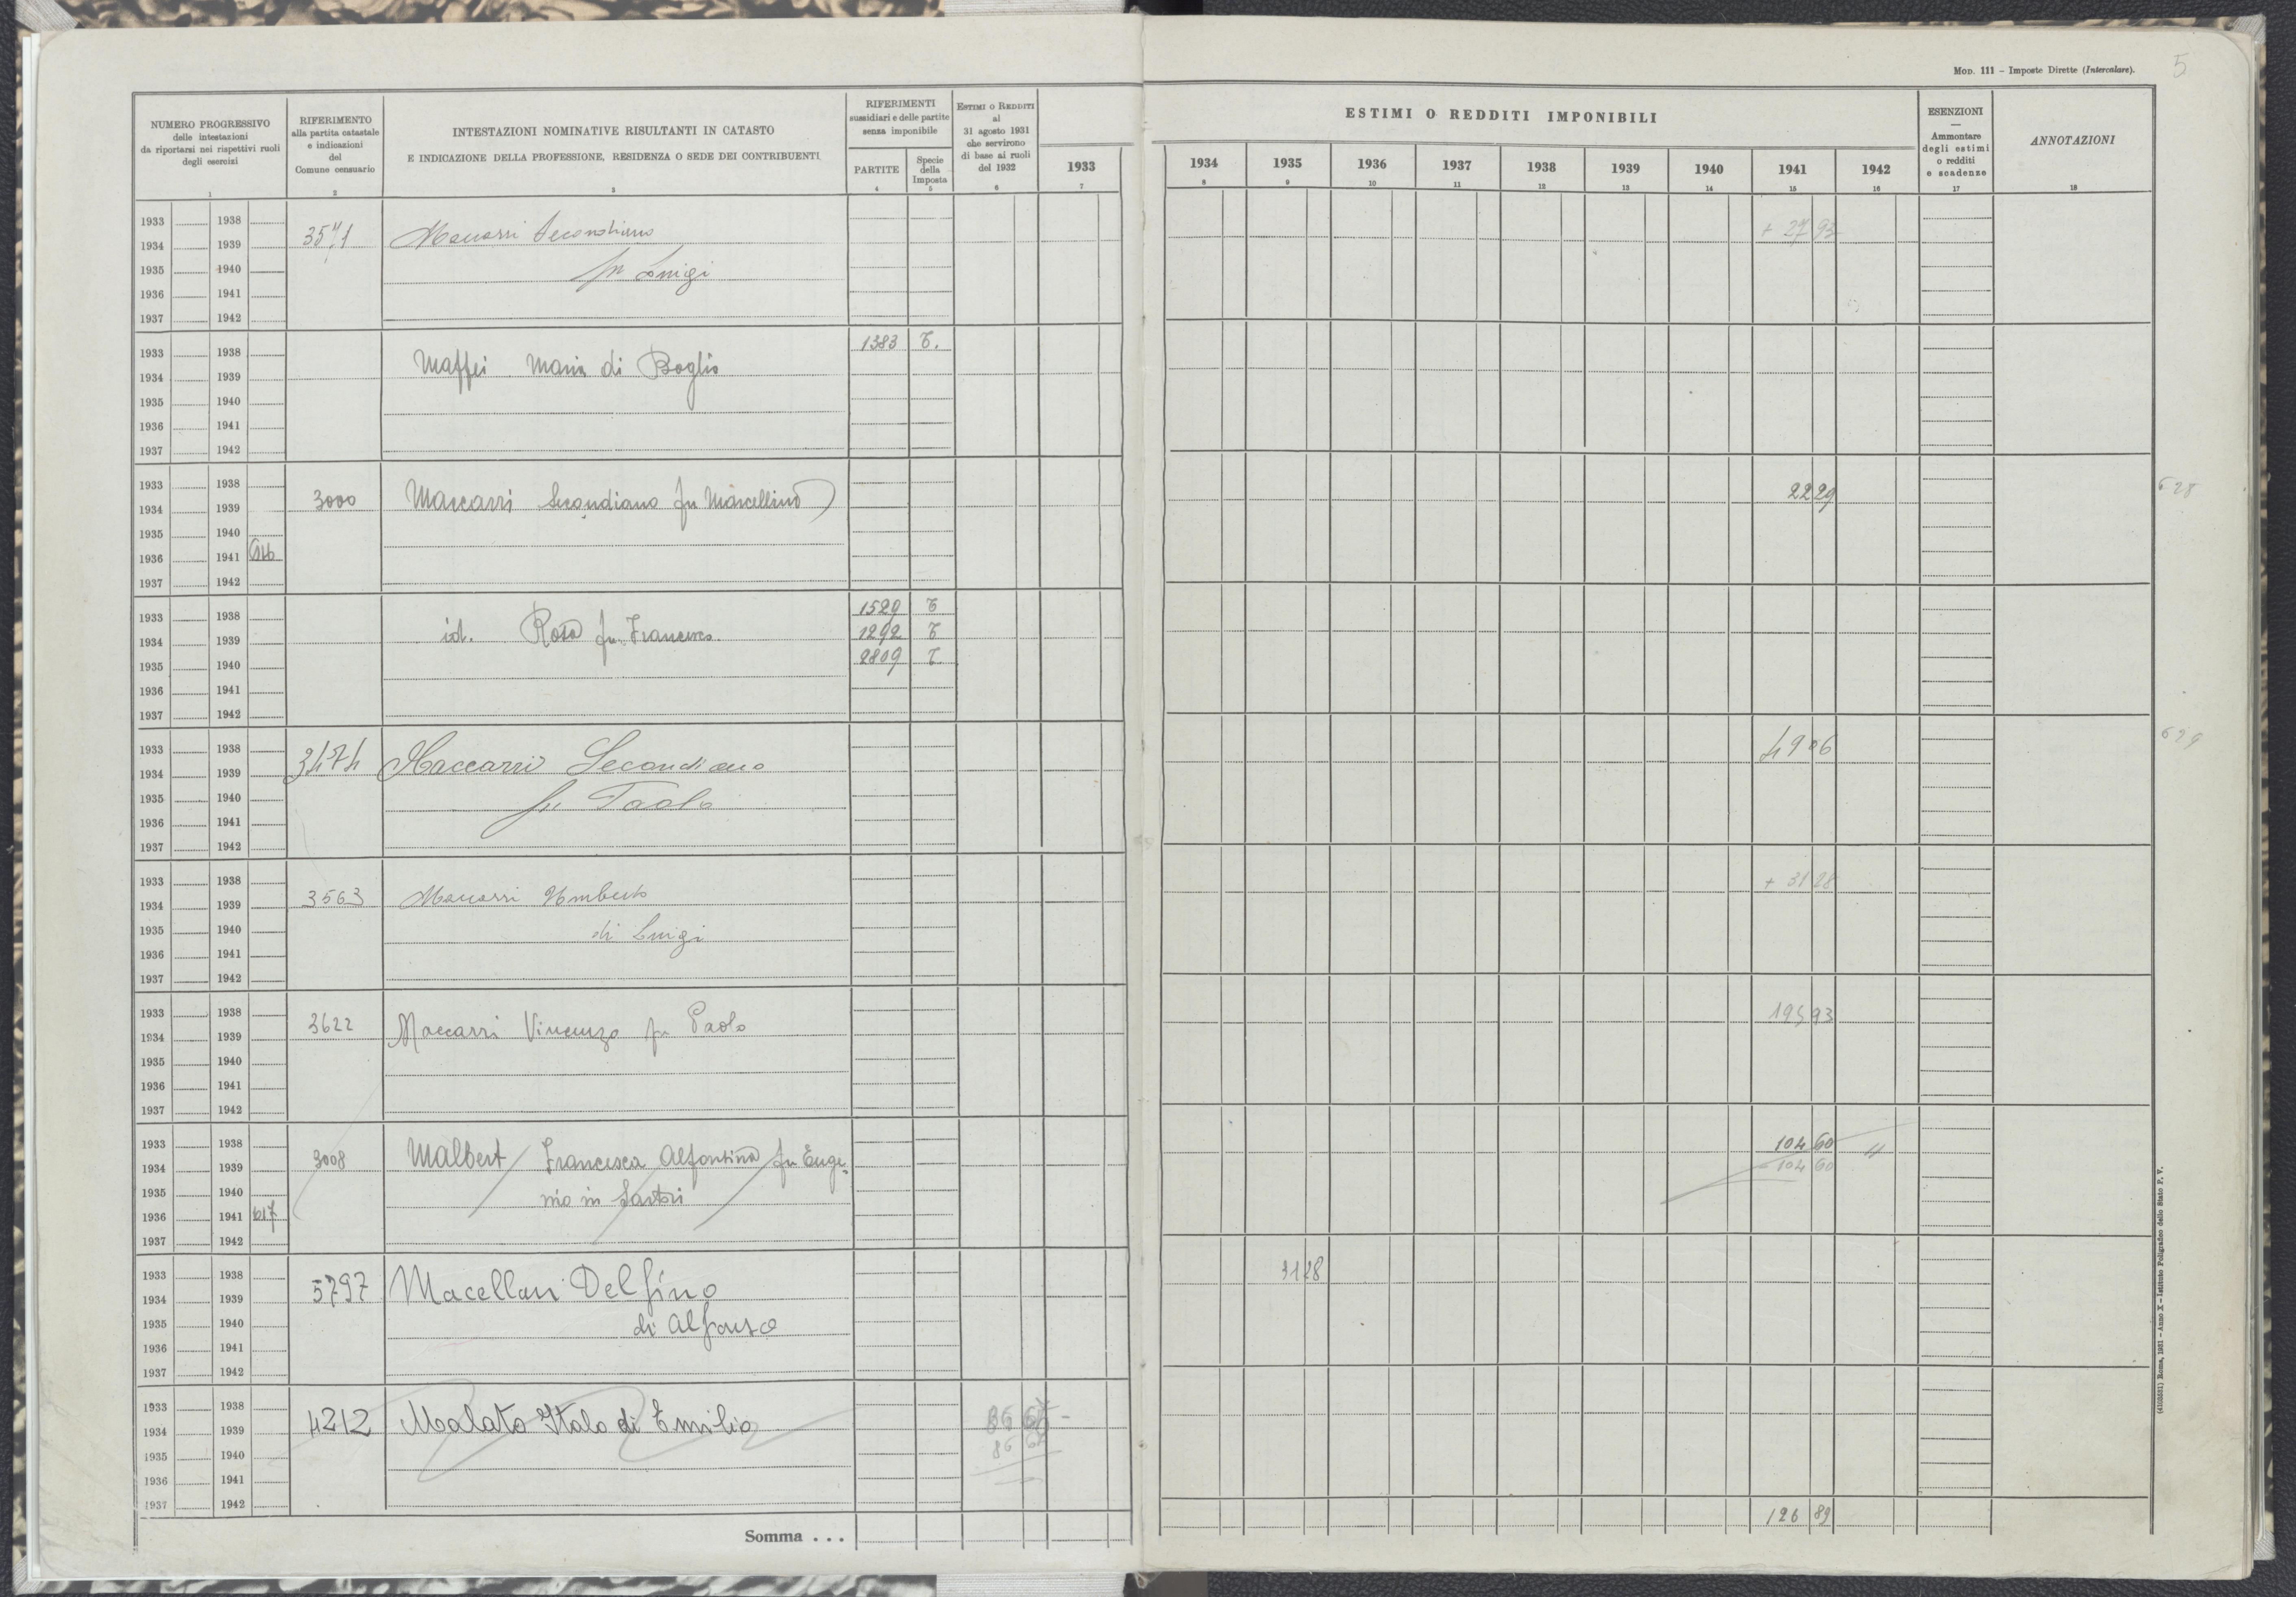 Mod. 111 – Imposte Dirette (Intercalare).
5
NUMERO PROGRESSIVO
delle intestazioni
da riportarsi nei rispettivi ruoli
degli esercizi
1
RIFERIMENTO
alla partita catastale
e indicazioni
del
Comune censuario
2
INTESTAZIONI NOMINATIVE RISULTANTI IN CATASTO
E INDICAZIONE DELLA PROFESSIONE, RESIDENZA O SEDE DEI CONTRIBUENTI
3
RIFERIMENTI
sussidiari e delle partite
senza imponibile
PARTITE
4
Specie
della
Imposta
5
Estimi o Redditi
al
31 agosto 1931
che servirono
di base ai ruoli
del 1932
6
1933
7
ESTIMI O REDDITI IMPONIBILI
1934 1935 1936 1937 1938 1939 1940 1941 1942
8 9 10 11 12 13 14 15 16
ESENZIONI
—
Ammontare
degli estimi
o redditi
e scadenze
17
ANNOTAZIONI
18
1933 1938
1934 1939 3571 Maccarri Secondiano + 27 93
1935 1940 fu Luigi
1936 1941
1937 1942
1383 T.
1933 1938
1934 1939 Maffei Maria di Boglio
1935 1940
1936 1941
1937 1942
1933 1938
1934 1939 3000 Maccarri Secondiano fu Marcellino 22 29 628
1935 1940
1936 1941 616
1937 1942
1933 1938 1529 T
1934 1939 id. Rosa fu Francesco 1292 T
1935 1940 2809 T
1936 1941
1937 1942
1933 1938
1934 1939 3474 Maccarri Secondiano 49 06 629
1935 1940 fu Paolo
1936 1941
1937 1942
1933 1938
1934 1939 3563 Maccarri Umberto + 31 28
1935 1940 di Luigi
1936 1941
1937 1942
1933 1938
1934 1939 3622 Maccarri Vincenzo fu Paolo 193 93
1935 1940
1936 1941
1937 1942
1933 1938 104 60
1934 1939 3008 Malbert Francesca Alfontina fu Euge= 104 60 "
1935 1940 nio in Sartori
1936 1941 617
1937 1942
1933 1938
1934 1939 5797 Macellari Delfino 31 28
1935 1940 di Alfonso
1936 1941
1937 1942
1933 1938
1934 1939 4212 Malato Italo di Emilio 86
1935 1940 86
1936 1941
1937 1942
Somma . . . 126 89
(4103531) Roma, 1931 – Anno X – Istituto Poligrafico dello Stato P. V.